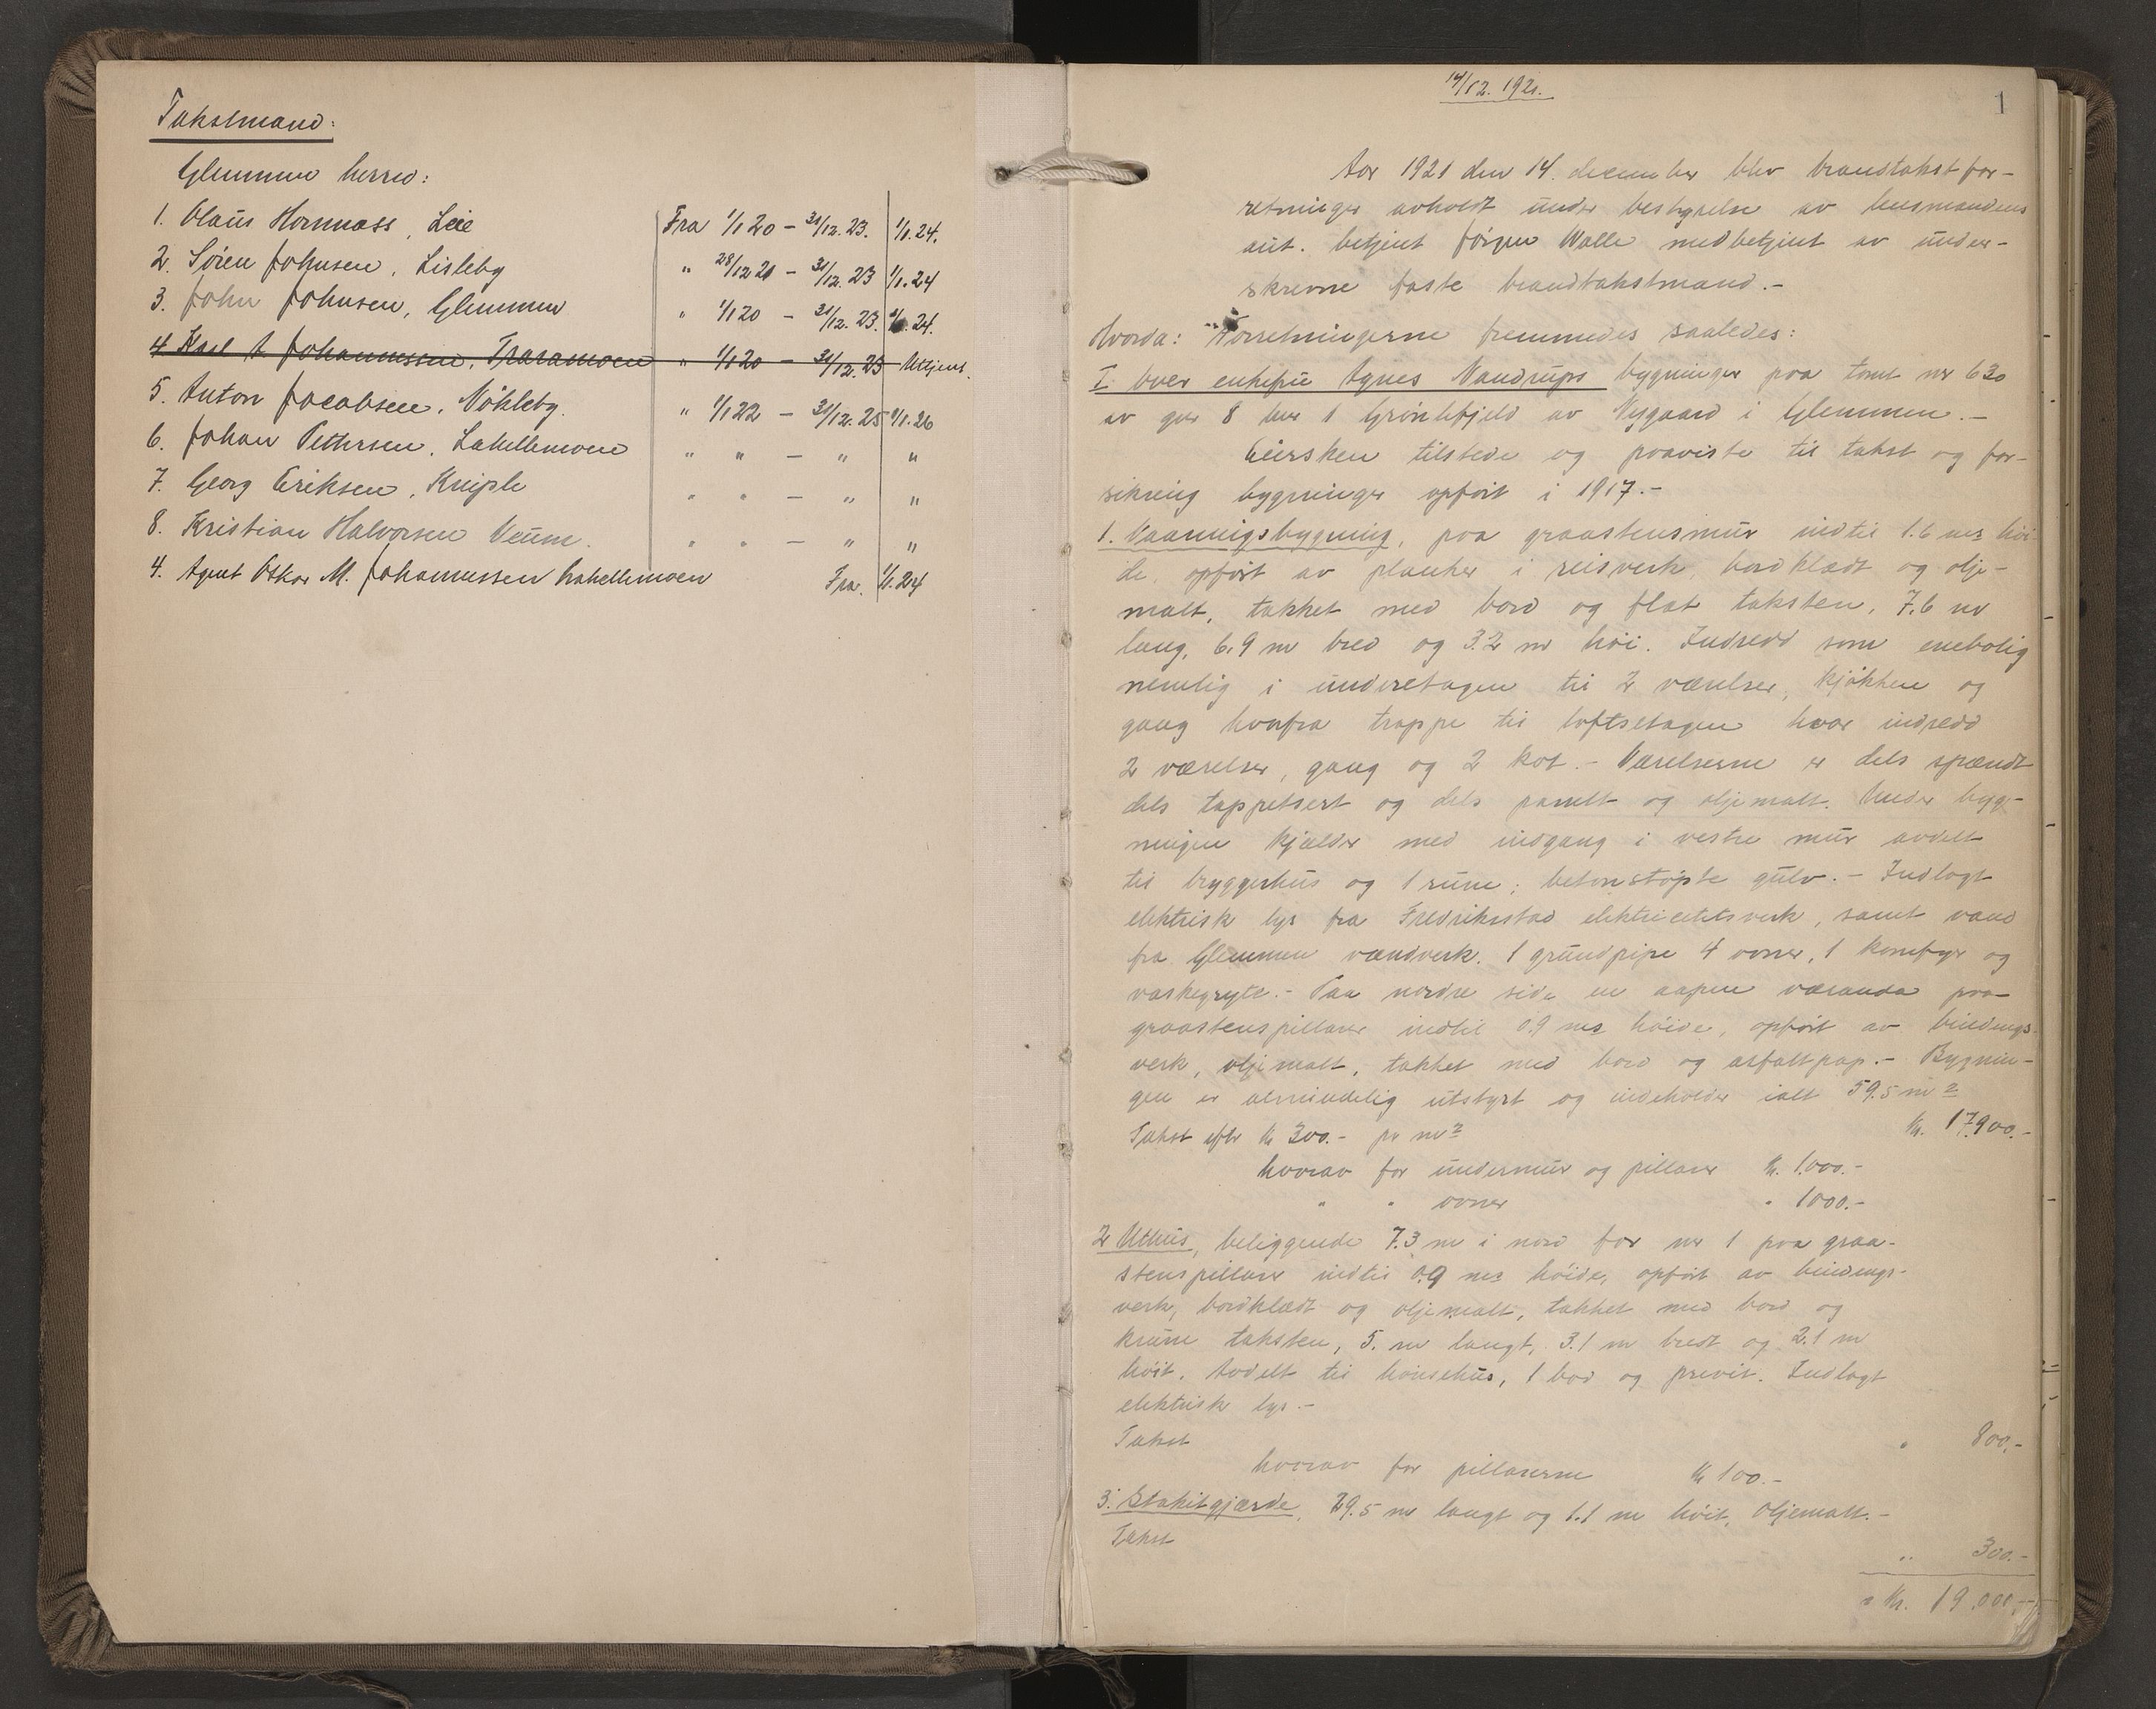 Takstmænd:
Glemmen herred:
1. Olaus Hornnæss, Leie Fra 1/1 20 - 31/12. 23. 1/1. 24.
2. Sören Johnsen, Lisleby " 28/12 20 - 31/12. 23 1/1. 24
3. John Johnsen, Glemmen " 1/1 20 - 31/12. 23. 1/1. 24.
4 Karl A. Johannessen, Traramoen " 1/1 20 - 31/12. 23 Uttjent.
5. Anton Jacobsen, Nöhleby. " 1/1 22 - 31/12. 25 1/1. 26
6. Johan Pettersen, Lahellemoen " " - " "
7. Georg Eriksen, Kniple " " - " "
8. Kristian Halvorsen Veum. " " - " "
4. Agent Oskar M. Johannessen Lahellemoen Fra. 1/1. 24
14/12. 1921.
1
Aar 1921 den 14. december blev brandtakstfor-
retninger avholdt under bestyrelse av lensmandens
aut. betjent Jörgen Walle medbetjent av under-
skrevne faste brandtakstmænd.-
Hvorda: Forretningerne fremmedes saaledes:
I. over enkefru Agnes Vandrups bygninger paa tomt nr 630
av gnr 8 bnr 1 Grönlifjeld av Nygaard i Glemmen.-
Eiersken tilstede og paaviste til takst og for-
sikring bygninger opfört i 1917.-
1. Vaaningsbygning, paa graastensmur indtil 1.6 ms höi-
de, opfört av planker i reisverk, bordklædt og olje-
malt, tækket med bord og flat taksten, 7.6 m
lang, 6.9 m bred og 3.2 m höi. Indredd som enebolig
nemlig i underetagen til 2 værelser, kjökken og
gang hvorfra trappe til loftsetagen hvor indredd
2 værelser, gang og 2 kot.- Værelserne er dels spændt
dels tappetsert og dels panelt og oljemalt. Under byg-
ningen kjælder med indgang i vestre mur avdelt
til bryggerhus og 1 rum; betonstöpte gulv.- Indlagt
elektrisk lys fra Fredriksstad elektricitetsverk, samt vand
fra Glemmen vandverk. 1 grundpipe 4 ovner, 1 komfyr og
vaskegryte.- Paa nordre side en aapen væranda paa
graastenspillarer indtil 0.9 ms höide, opfört av bindings-
verk, oljemalt, tækket med bord og asfaltpap.- Bygnin-
gen er almindelig utstyrt og indeholder ialt 59.5 m2
Takst efter kr 300.- pr m2 Kr. 17.900.-
hvorav for undermur og pillarer Kr. 1.000.-
" " ovner " 1000.-
2 Uthus, beliggende 7.3 m i nord for nr 1 paa graa-
stenspillarer indtil 0.9 ms höide, opfört av bindings-
verk, bordklædt og oljemalt, tækket med bord og
krum taksten, 5. m langt, 3.1 m bredt og 2.1 m
höit. Avdelt til hönsehus, 1 bod og prevet. Indlagt
elektrisk lys.-
Takst " 800.-
hvorav for pillarerne Kr 100.-
3. Stakitgjærde, 29.5 m langt og 1.1 m höit, oljemalt.-
Takst " 300.-
Kr. 19.000.-